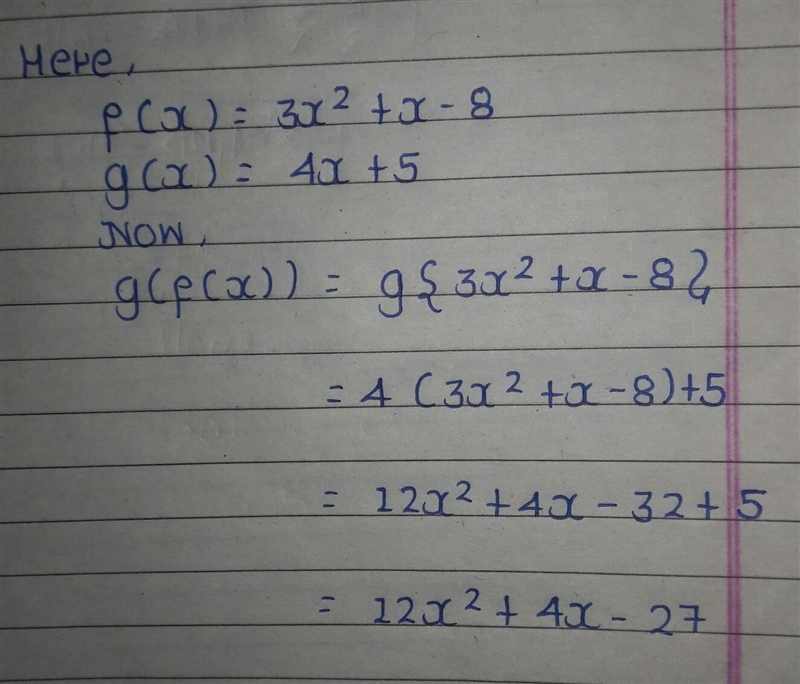 Here,
f(x) = 3x² + x - 8
g(x) = 4x + 5
NOW,
g(f(x)) = g{3x² + x - 8}
= 4 (3x² + x - 8) + 5
= 12x² + 4x - 32 + 5
= 12x² + 4x - 27